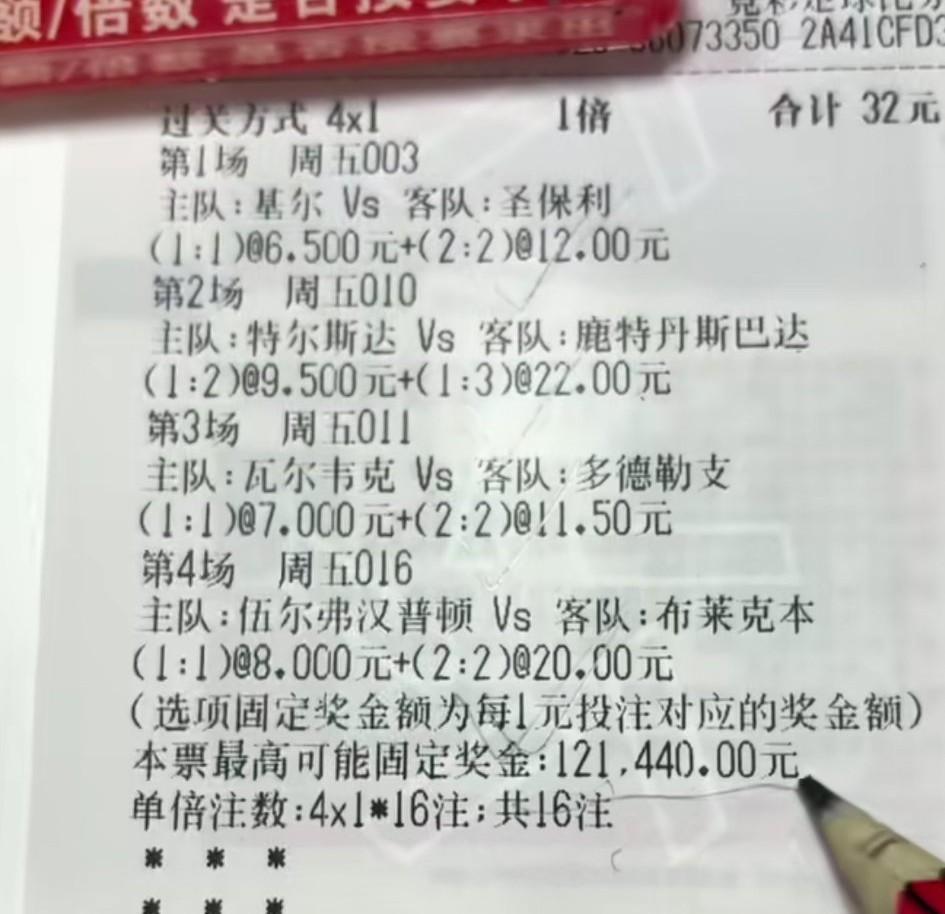 额/倍数 是否按要
073350 2A41CFD3
过关方式 4x1 1倍 合计 32元
第1场 周五003
主队:基尔 Vs 客队:圣保利
(1:1)@6.500元+(2:2)@12.00元
第2场 周五010
主队:特尔斯达 Vs 客队:鹿特丹斯巴达
(1:2)@9.500元+(1:3)@22.00元
第3场 周五011
主队:瓦尔韦克 Vs 客队:多德勒支
(1:1)@7.000元+(2:2)@11.50元
第4场 周五016
主队:伍尔弗汉普顿 Vs 客队:布莱克本
(1:1)@8.000元+(2:2)@20.00元
(选项固定奖金额为每1元投注对应的奖金额)
本票最高可能固定奖金:121,440.00元
单倍注数:4x1*16注;共16注
* * *
* * *